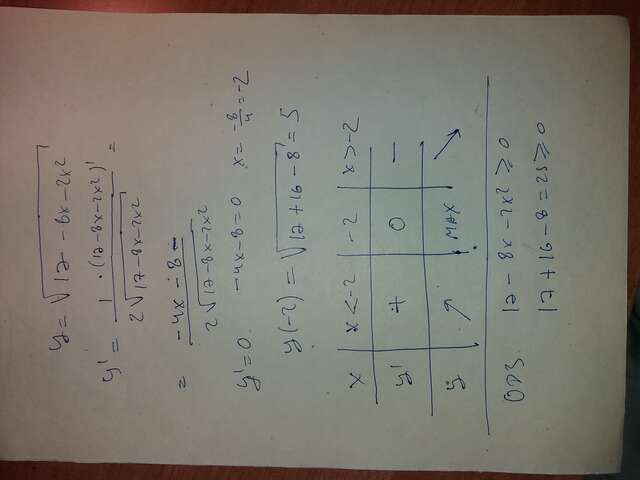 y = √(17 - 8x - 2x²)
y' = 1 · (17-8x-2x²)' / 2√(17-8x-2x²) =
= -4x - 8 / 2√(17-8x-2x²)
y' = 0 -4x-8=0 x = -8/4 = -2
y(-2) = √(17+16-8) = 5
x x<-2 -2 x>-2
y' + 0 -
y ↗ MAX ↘
ОДЗ 17 - 8x - 2x² ≥ 0
17 + 16 - 8 = 25 ≥ 0